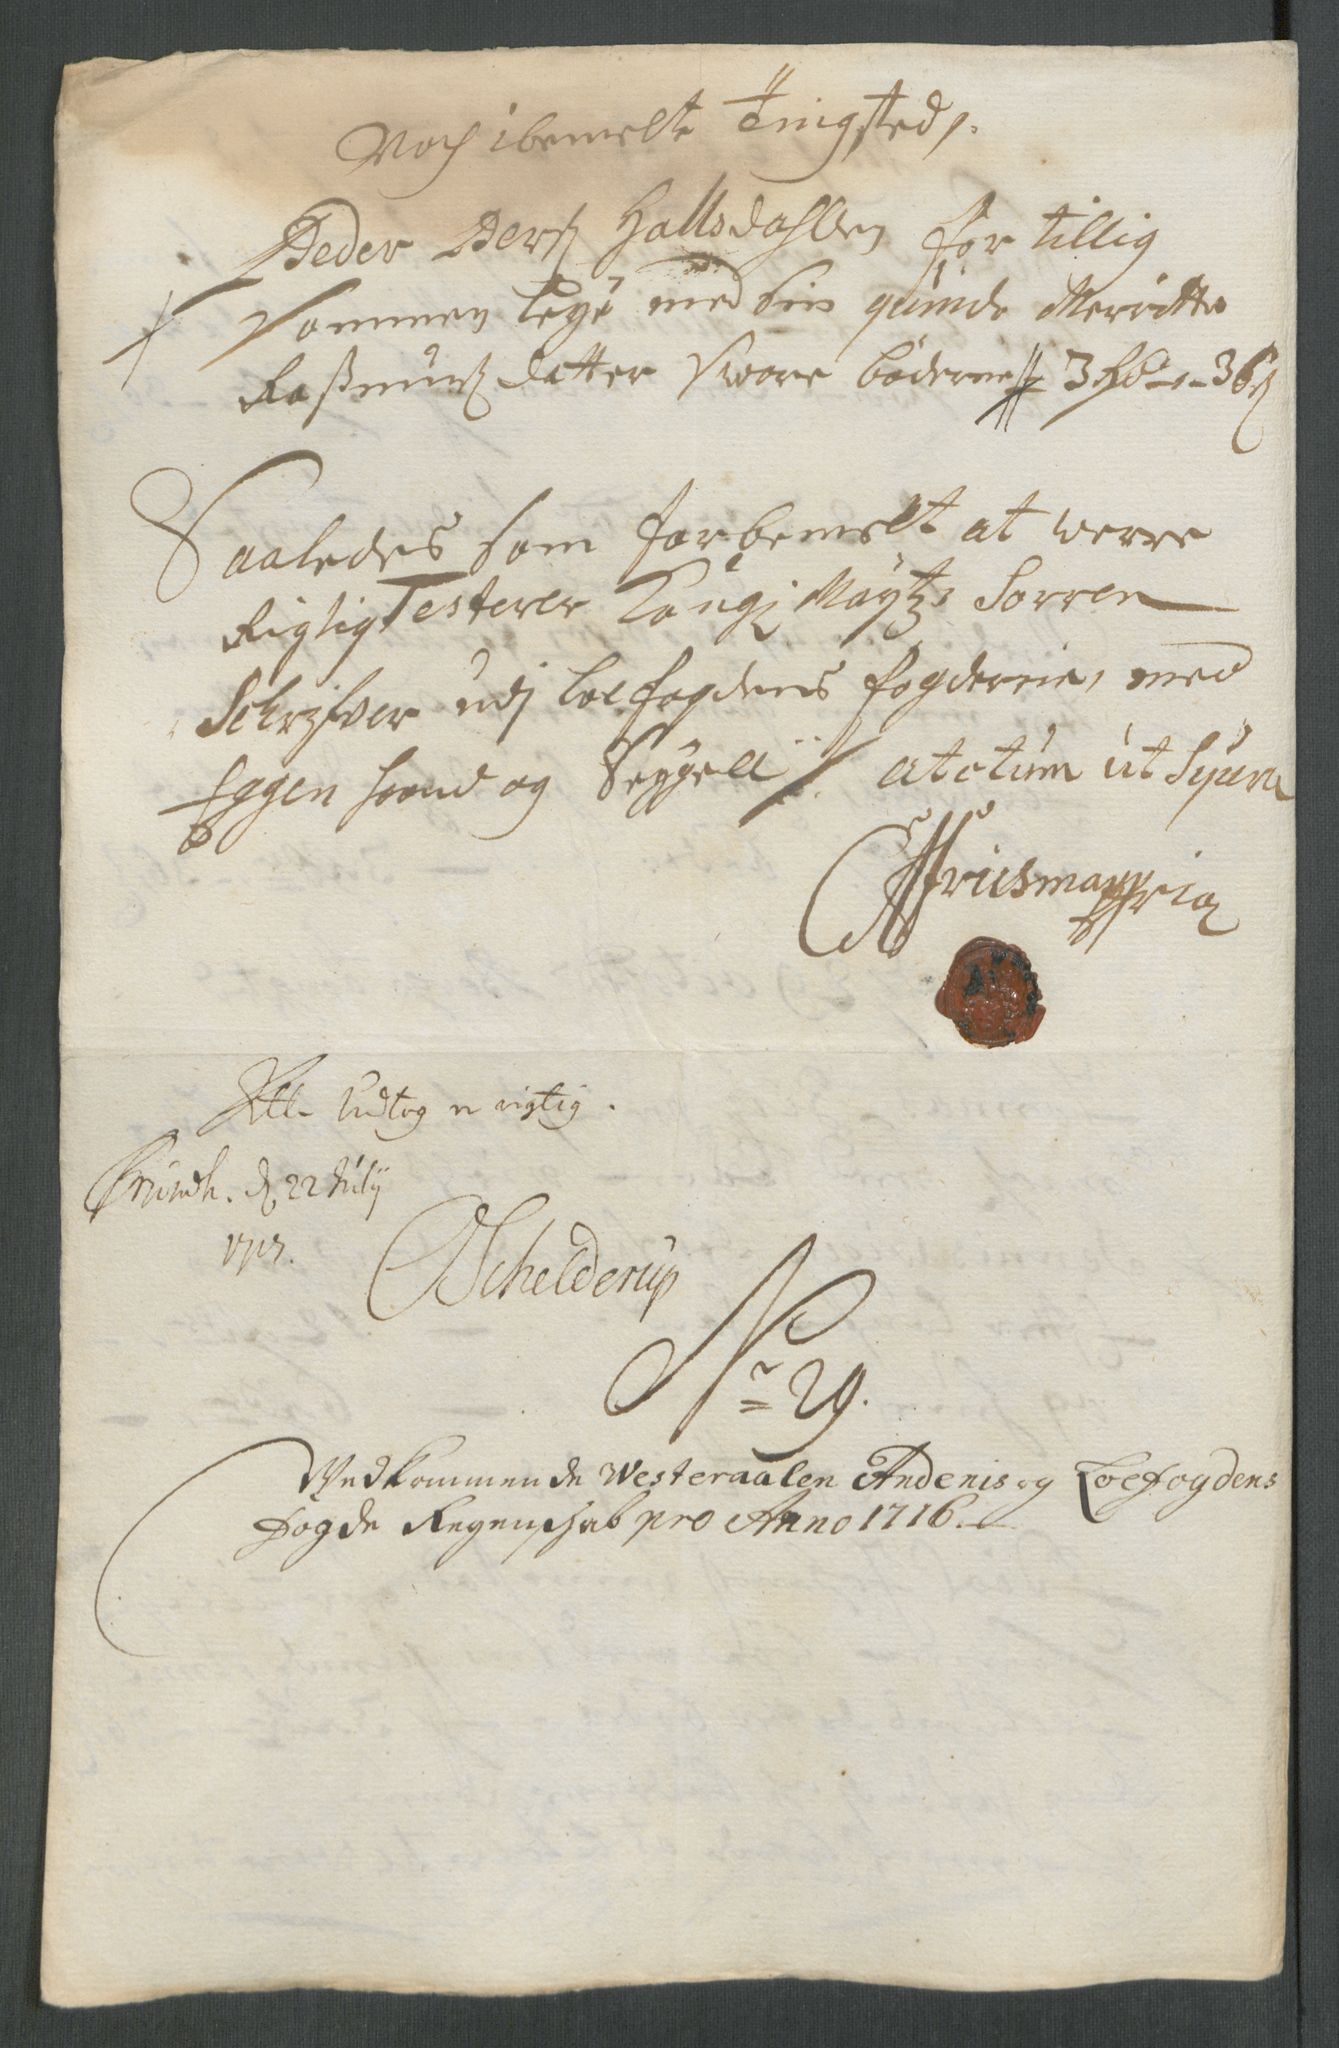 Noch ibemelte Tingsted,
Peder Pers: Hallsdahlen for tillig
Sommen leye med sin quinde Merritte
Raßmus datter Svore böderne 3 rd - 36 s
Saaledes som forbemelt at werre
Rigtig Testerer Kongl Maytz Sorren
Schrifver udj Loefogdens fogderie, med
Eggen haand og Seygell / ut ctum ut Supra
Friismann mria
Att Udtog er rigtig.
Trundh. d 22 Julij
1717.
Schelderup
Nr 29.
Vedkommende Westeraalen Andenis og Loefogdens
Fogde Regenschab pro Anno 1716.